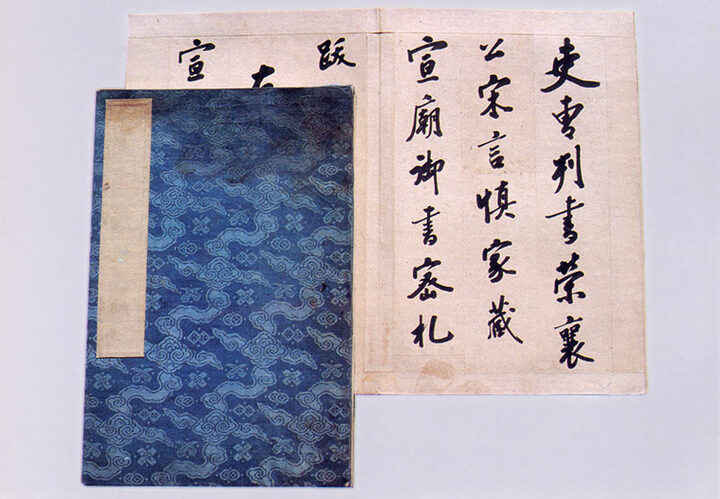 吏曹判書榮襄
公宋言慎家藏
宣廟御書密札
跋
宣